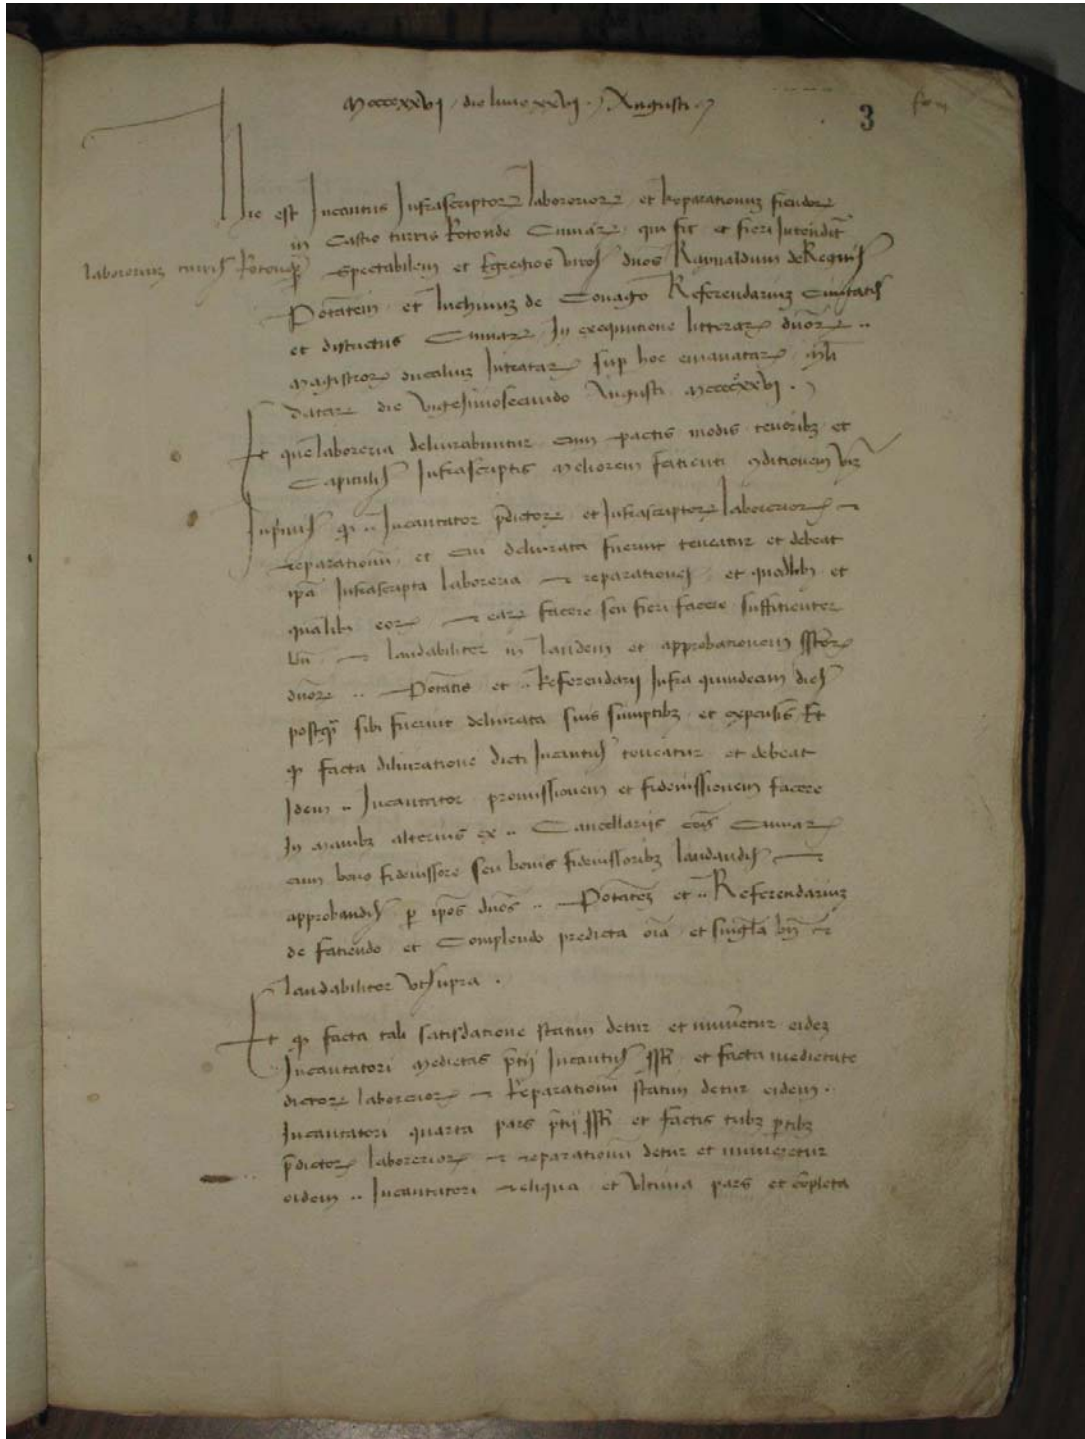 Mccccxxvj die lune xxvj Augusti
3
Hic est Incantus Infrascriptor laborerior et Reparationum fiendor
in Castro turris Rotonde Cumar qui fit et fieri Intendit
laborerium turris Rotonde
Spectabilem et Egregios viros duos Raynaldum de
Potatem et luchinum de Referendarium Civitatis
et districtus Cumar In exequutione litterar duor ..
Magistror ducalium Intratar sup hoc emanatar
datar die vigesimosecundo Augusti Mccccxxvj
Et que laboreria deliurabuntur cum pactis modis tenoribz et
Capitulis Infrascriptis Meliorem fatienti 9ditionem vz
Inprimis q .. Incantator pdictor et Infrascriptor laborerior et
reparationu et cui deliurata fuerint teneatur et debeat
ipa Infrascripta laboreria et reparationes et quodlibz et
qualibz eor et ear facere seu fieri facere suffitienter
bn et laudabiliter in laudem et approbationem
duor .. Potatis et .. Referendarij Infra quindecim dies
postq sibi fuerint deliurata suis sumptibz et expensis Et
q facta deliuratione dicti Incantus teneatur et debeat
Idem .. Incantator promissionem et fideiussionem facere
In manibz alterius ex .. Cancellarijs cois Cumar
cum bono fideiussore seu bonis fideiussoribz laudandis et
approbandis p ipos duos .. Potatez et .. Referendarium
de fatiendo et Complendo predicta oia et singla bn et
laudabiliter vt supra .
Et q facta tali satisdatione statim detur et numeretur eidez
Incantatori Medietas ptij Incantus et facta medietate
dictor laborerior et Reparationu statim detur eidem ..
Incantatori quarta pars ptij et factis tribz ptibz
pdictor laborerior et reparationu detur et numeretur
eidem .. Incantatori reliqua et vltima pars et cpleta